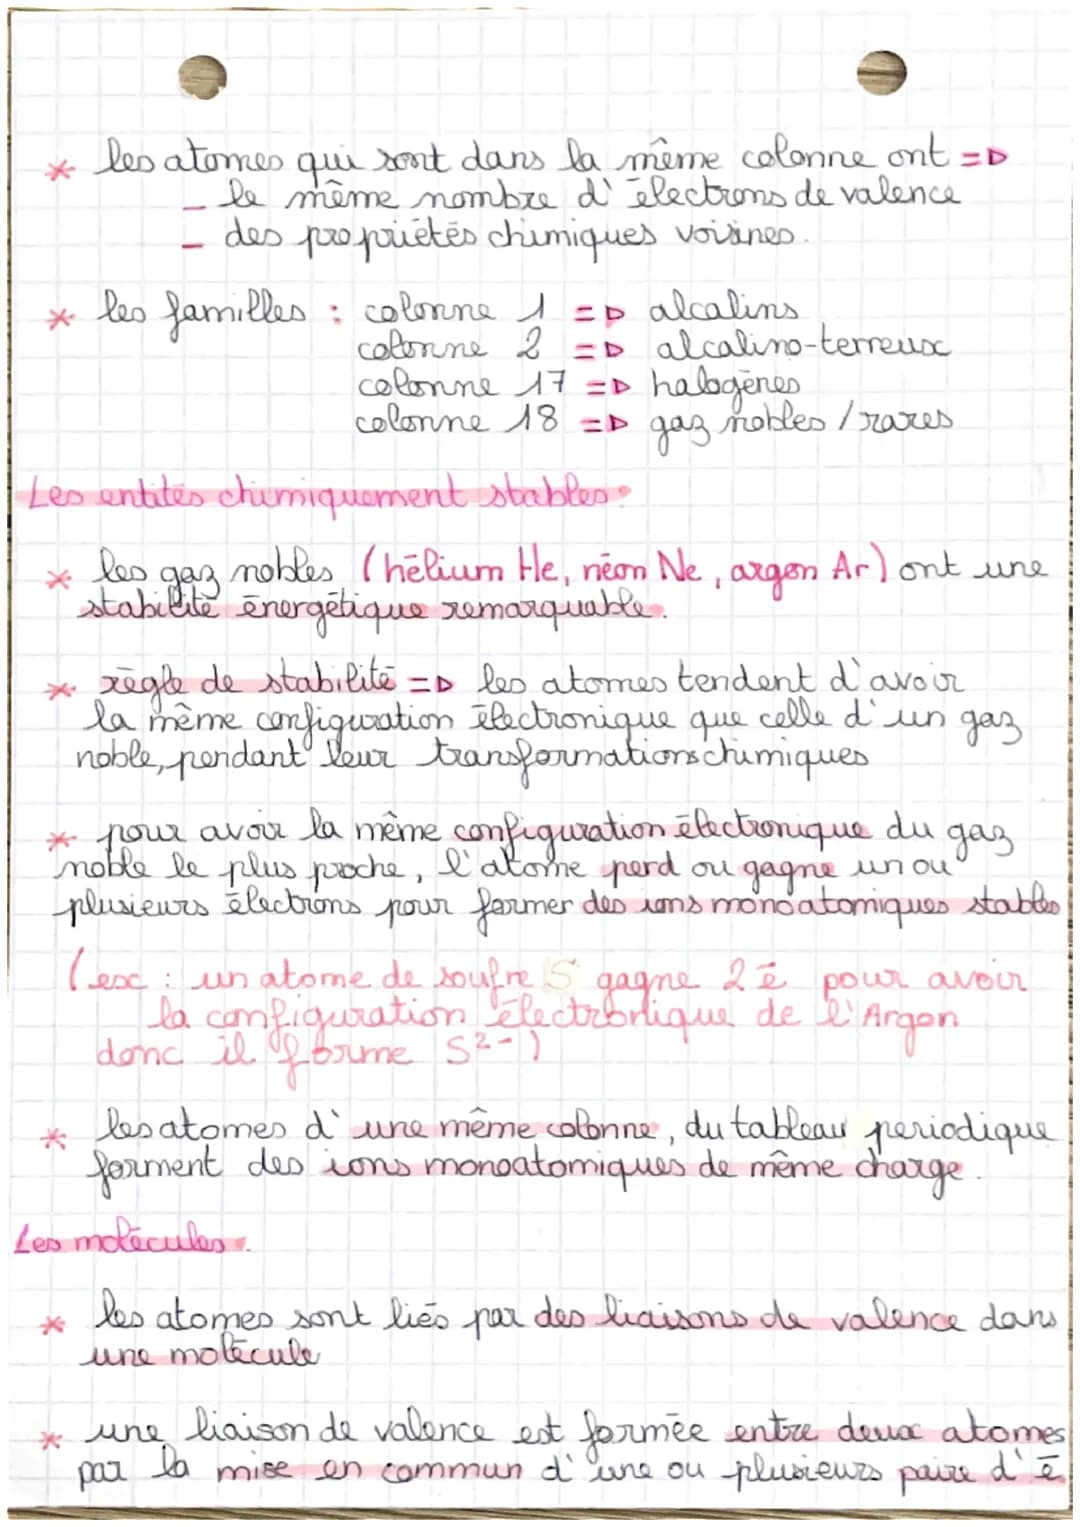 * les atomes qui sont dans la même colonne ont =D
– le même nombre d'électrons de valence
– des propriétés chimiques voisines.
* les familles : colonne 1 =D alcalins
colonne 2 =D alcalino-terreux
colonne 17 =D halogènes
colonne 18 =D gaz nobles / rares
Les entités chimiquement stables.
* les gaz nobles (hélium He, néon Ne, argon Ar) ont une
stabilité énergétique remarquable.
* règle de stabilité =D les atomes tendent d'avoir
la même configuration électronique que celle d'un gaz
noble, pendant leur transformations chimiques
* pour avoir la même configuration électronique du gaz
noble le plus proche, l'atome perd ou gagne un ou
plusieurs électrons pour former des ions monoatomiques stables
(ex : un atome de soufre S gagne 2 ē pour avoir
la configuration électronique de l'Argon
donc il forme S²⁻)
* les atomes d'une même colonne, du tableau periodique
forment des ions monoatomiques de même charge.
Les molécules.
* les atomes sont liés par des liaisons de valence dans
une molécule
* une liaison de valence est formée entre deux atomes
par la mise en commun d'une ou plusieurs paire d'ē